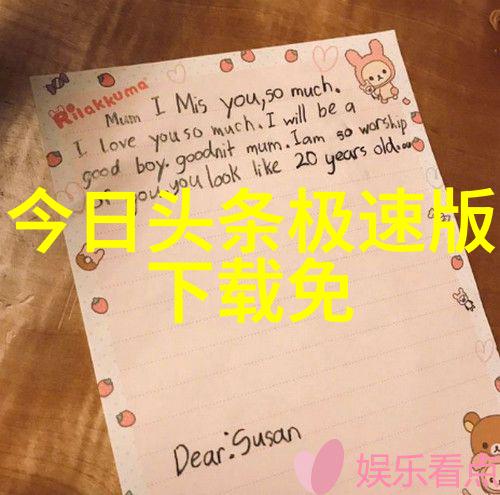 Rilakkuma
Mum I Mis you,so much.
I love you so much. I will be a
good boy. goodnit mum. I am so worship
of you. you look like 20 years old.
今日头条极速版
下载免
Dear:Susan
娱乐看点